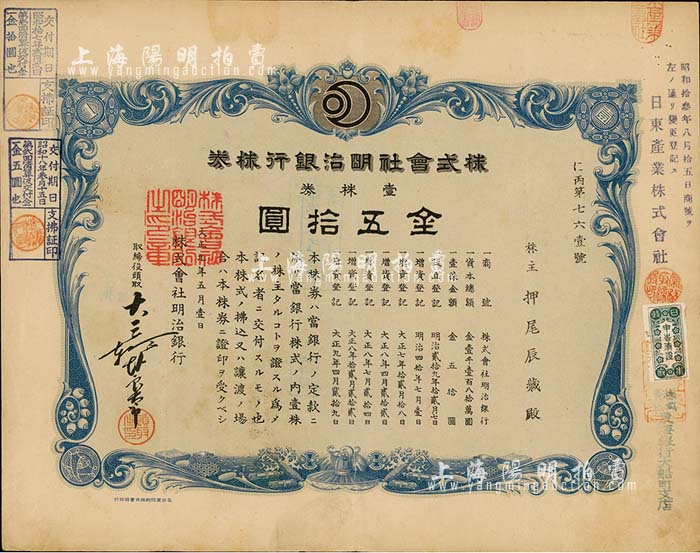 券株行銀治明社會式株
券株壹
圓拾五金
に丙第七六壹號
株主 押尾辰藏殿
一商號 株式會社明治銀行
一資本總額 金壹千壹百八拾萬圓
壹株金額 金五拾圓
一設立登記 明治貳拾九年拾貳月七日
一增資登記 明治四拾年七月壹日
一增資登記 大正七年拾貳月拾八日
一增資登記 大正八年四月貳拾四日
一增資登記 大正八年七月貳拾四日
一增資登記 大正八年拾貳月貳拾日
一增資登記 大正九年四月貳拾九日
本株券ハ當銀行ノ定款ニ
依リ當銀行株式ノ內壹株
ノ株主タルコトヲ證スル爲メ
記名者ニ交付スルモノ也
本株式ノ拂込又ハ讓渡ノ場
合ハ本株券ニ證印ヲ受クベシ
大正九年五月壹日
株式會社明治銀行
取締役頭取
昭和拾叁年 月拾五日商號ヲ
左ノ通リ變更登記ス
日東產業株式會社
交付期日
金拾圓也
支拂証印
交付期日
昭和十五年 月十五日
金五圓也
支拂証印
上海陽明拍賣
www.yangmingauction.com
上海陽明拍賣
www.yangmingauction.com